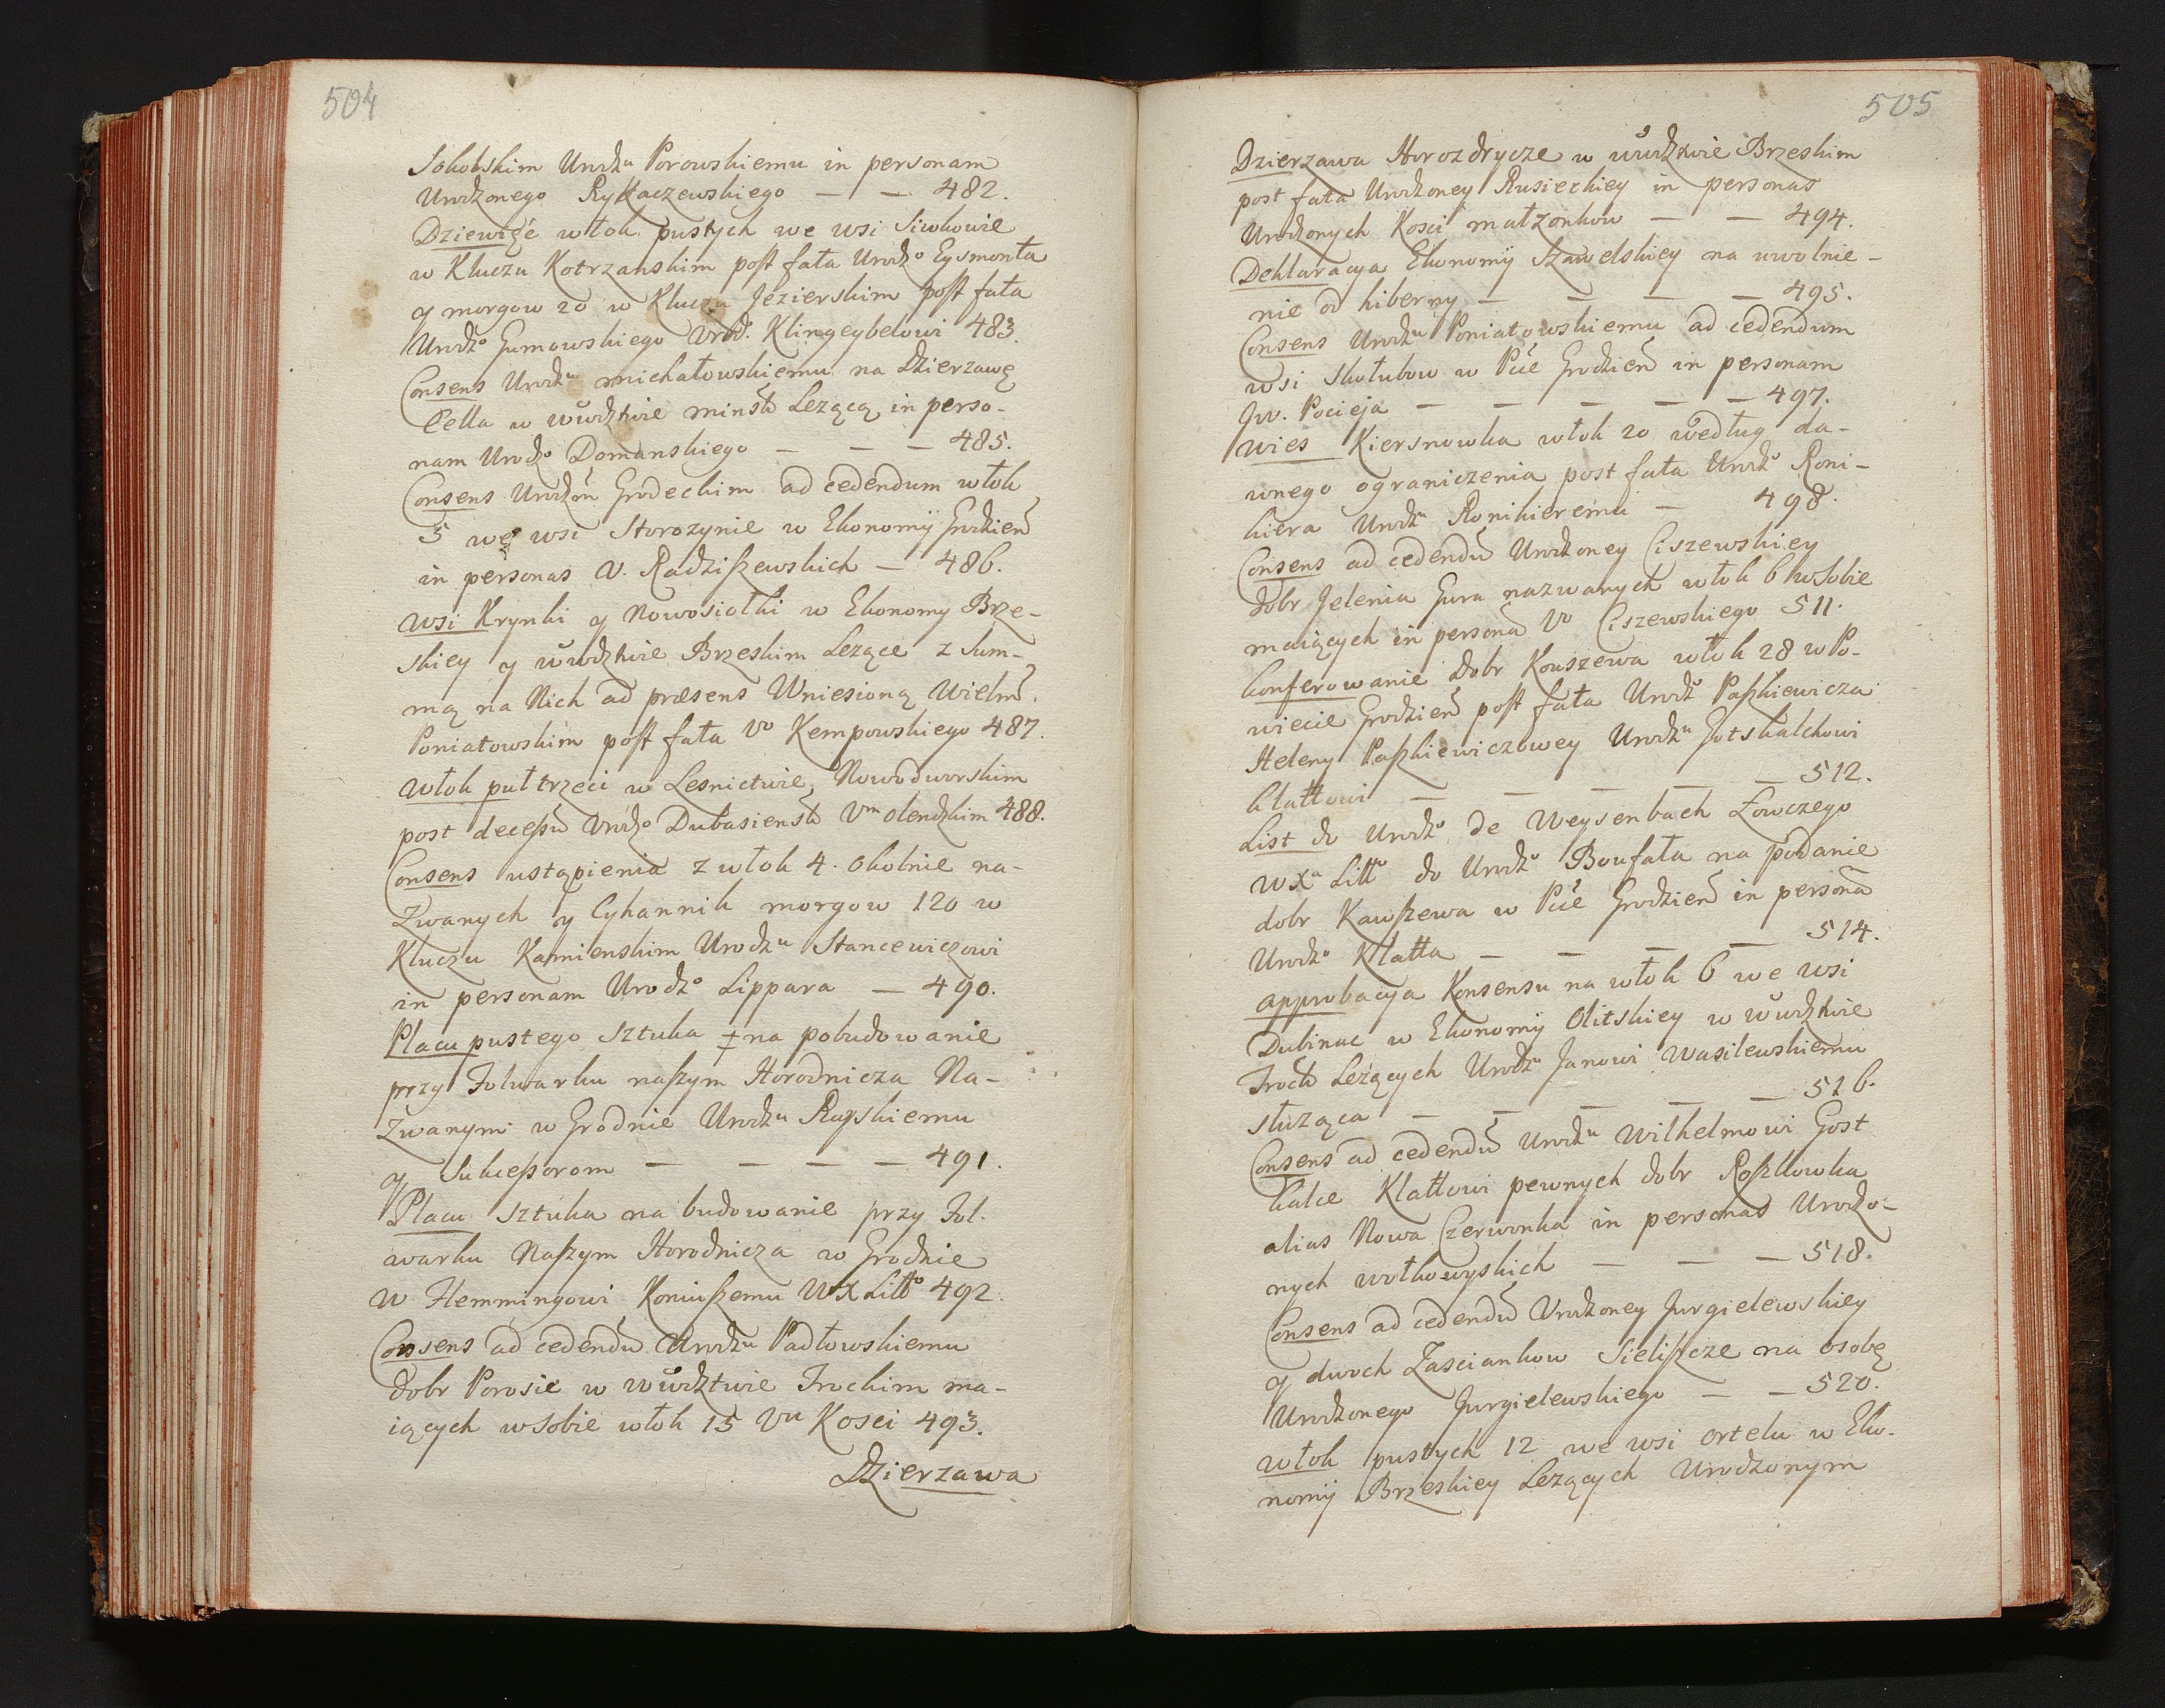 504
Sokolskim Urodzu Porowskiemu in personam
Urodzonego Rykaczewskiego — — 482.
Dziewięć włok pustych we wsi Siwkowie
w Kluczu Kotrzanskim post fata Urodzo Eysmonta
y morgow 20 w Kluczu Jezierskim post fata
Urodzo Gumowskiego Urod. Klingeybelowi 483.
Consens Urodzu Michałowskiemu na Dzierzawę
Cella w wůdztwie minsk Lezącą in perso-
nam Urodzo Domanskiego — — — 485.
Consens Urodzm Grodeckim ad cedendum włok
5 we wsi Storozynie w Ekonomÿ Grodzien
in personas U. Radziszewskich — 486.
Wsi Krynki y Nowosiołki w Ekonomy Brze-
skiey y wůdztwie Brzeskim Lezące z Sum-
mą na Nich ad præsens Wniesioną Wielm.
Poniatowskim post fata Uo Kempowskiego 487.
Włok puł trzeci w Lesnictwie Nowodworskim
post decessũ Urodzo Dubasiensk Um olendzkim 488.
Consens ustąpienia z włok 4. okolnie na-
zwanych y Cyhannik morgow 120 w
Kluczu Kamienskim Urodzu Stancewiczowi
in personam Urodzo Lippara — 490.
Placu pustego sztuka ‡ na pobudowanie
przy Folwarku naszym Horodnicza Na-
zwanym w Grodnie Urodzu Rupskiemu
y Sukcessorom — — — — 491.
Placu sztuka na budowanie przy Fol.
warku Naszym Horodnicza w Grodnie
W Flemmingowi Koniuszemu WX Litto 492.
Consens ad cedendũ Urodzu Padłowskiemu
dobr Porosie w wůdztwie Trockim ma-
iących w Sobie włok 15 Uu Kosci 493.
Dzierzawa
505
Dzierzawa Horozdrycze w wůdztwie Brzeskim
post fata Urodzoney Rusieckiey in personas
Urodzonych Kosci małzonkow — — 494.
Deklaracya Ekonomÿ Szawelskiey na uwolnie-
nie od hiberny — — — — 495.
Consens Urodzu Poniatowskiemu ad cedendum
wsi Skołubow w Pcie Grodzien in personam
Jw. Pocieja — — — — — 497.
Wies Kiersnowka włok 20 według da-
wnego ograniczenia post fata Urodzo Roni-
kiera Urodzu Ronikieremu — 498.
Consens ad cedendũ Urodzoney Ciszewskiey
dobr Jelenia Gura nazwanych włok 6 w Sobie
maiących in personã Uo Ciszewskiego 511.
Konferowanie dobr Kouszewa włok 28 w Po-
wiecie Grodzien post fata Urodzo Paszkiewicza
Heleny Paszkiewiczowey Urodzu Gotskalchowi
Klattowi — — — — 512.
List do Urodzo de Weysenbach Łowczego
WXa Litto do Urodzo Boufała na podanie
dobr Kawszewa w Pcie Grodzien in personã
Urodzo Klatta — — — — 514.
Approbacya Konsensu na włok 6 we wsi
Dubinac w Ekonomÿ Olitskiey w wůdztwie
Trock Lezących Urodzu Janowi Wasilewskiemu
słuząca — — — — — 516.
Consens ad cedendũ Urodzu Wilhelmowi Gost
kalce Klattowi pewnych dobr Roszkowka
alias Nowa Czerwonka in personas Urodzo-
nych wołkowyskich — — — 518.
Consens ad cedendũ Urodzoney Jurgielewskiey
y dwoch Zascianków Sieliszcze na osobę
Urodzonego Jurgielewskiego — — 520.
Włok pustych 12 we wsi Ortelu w Eko-
nomÿ Brzeskiey Lezących Urodzonym